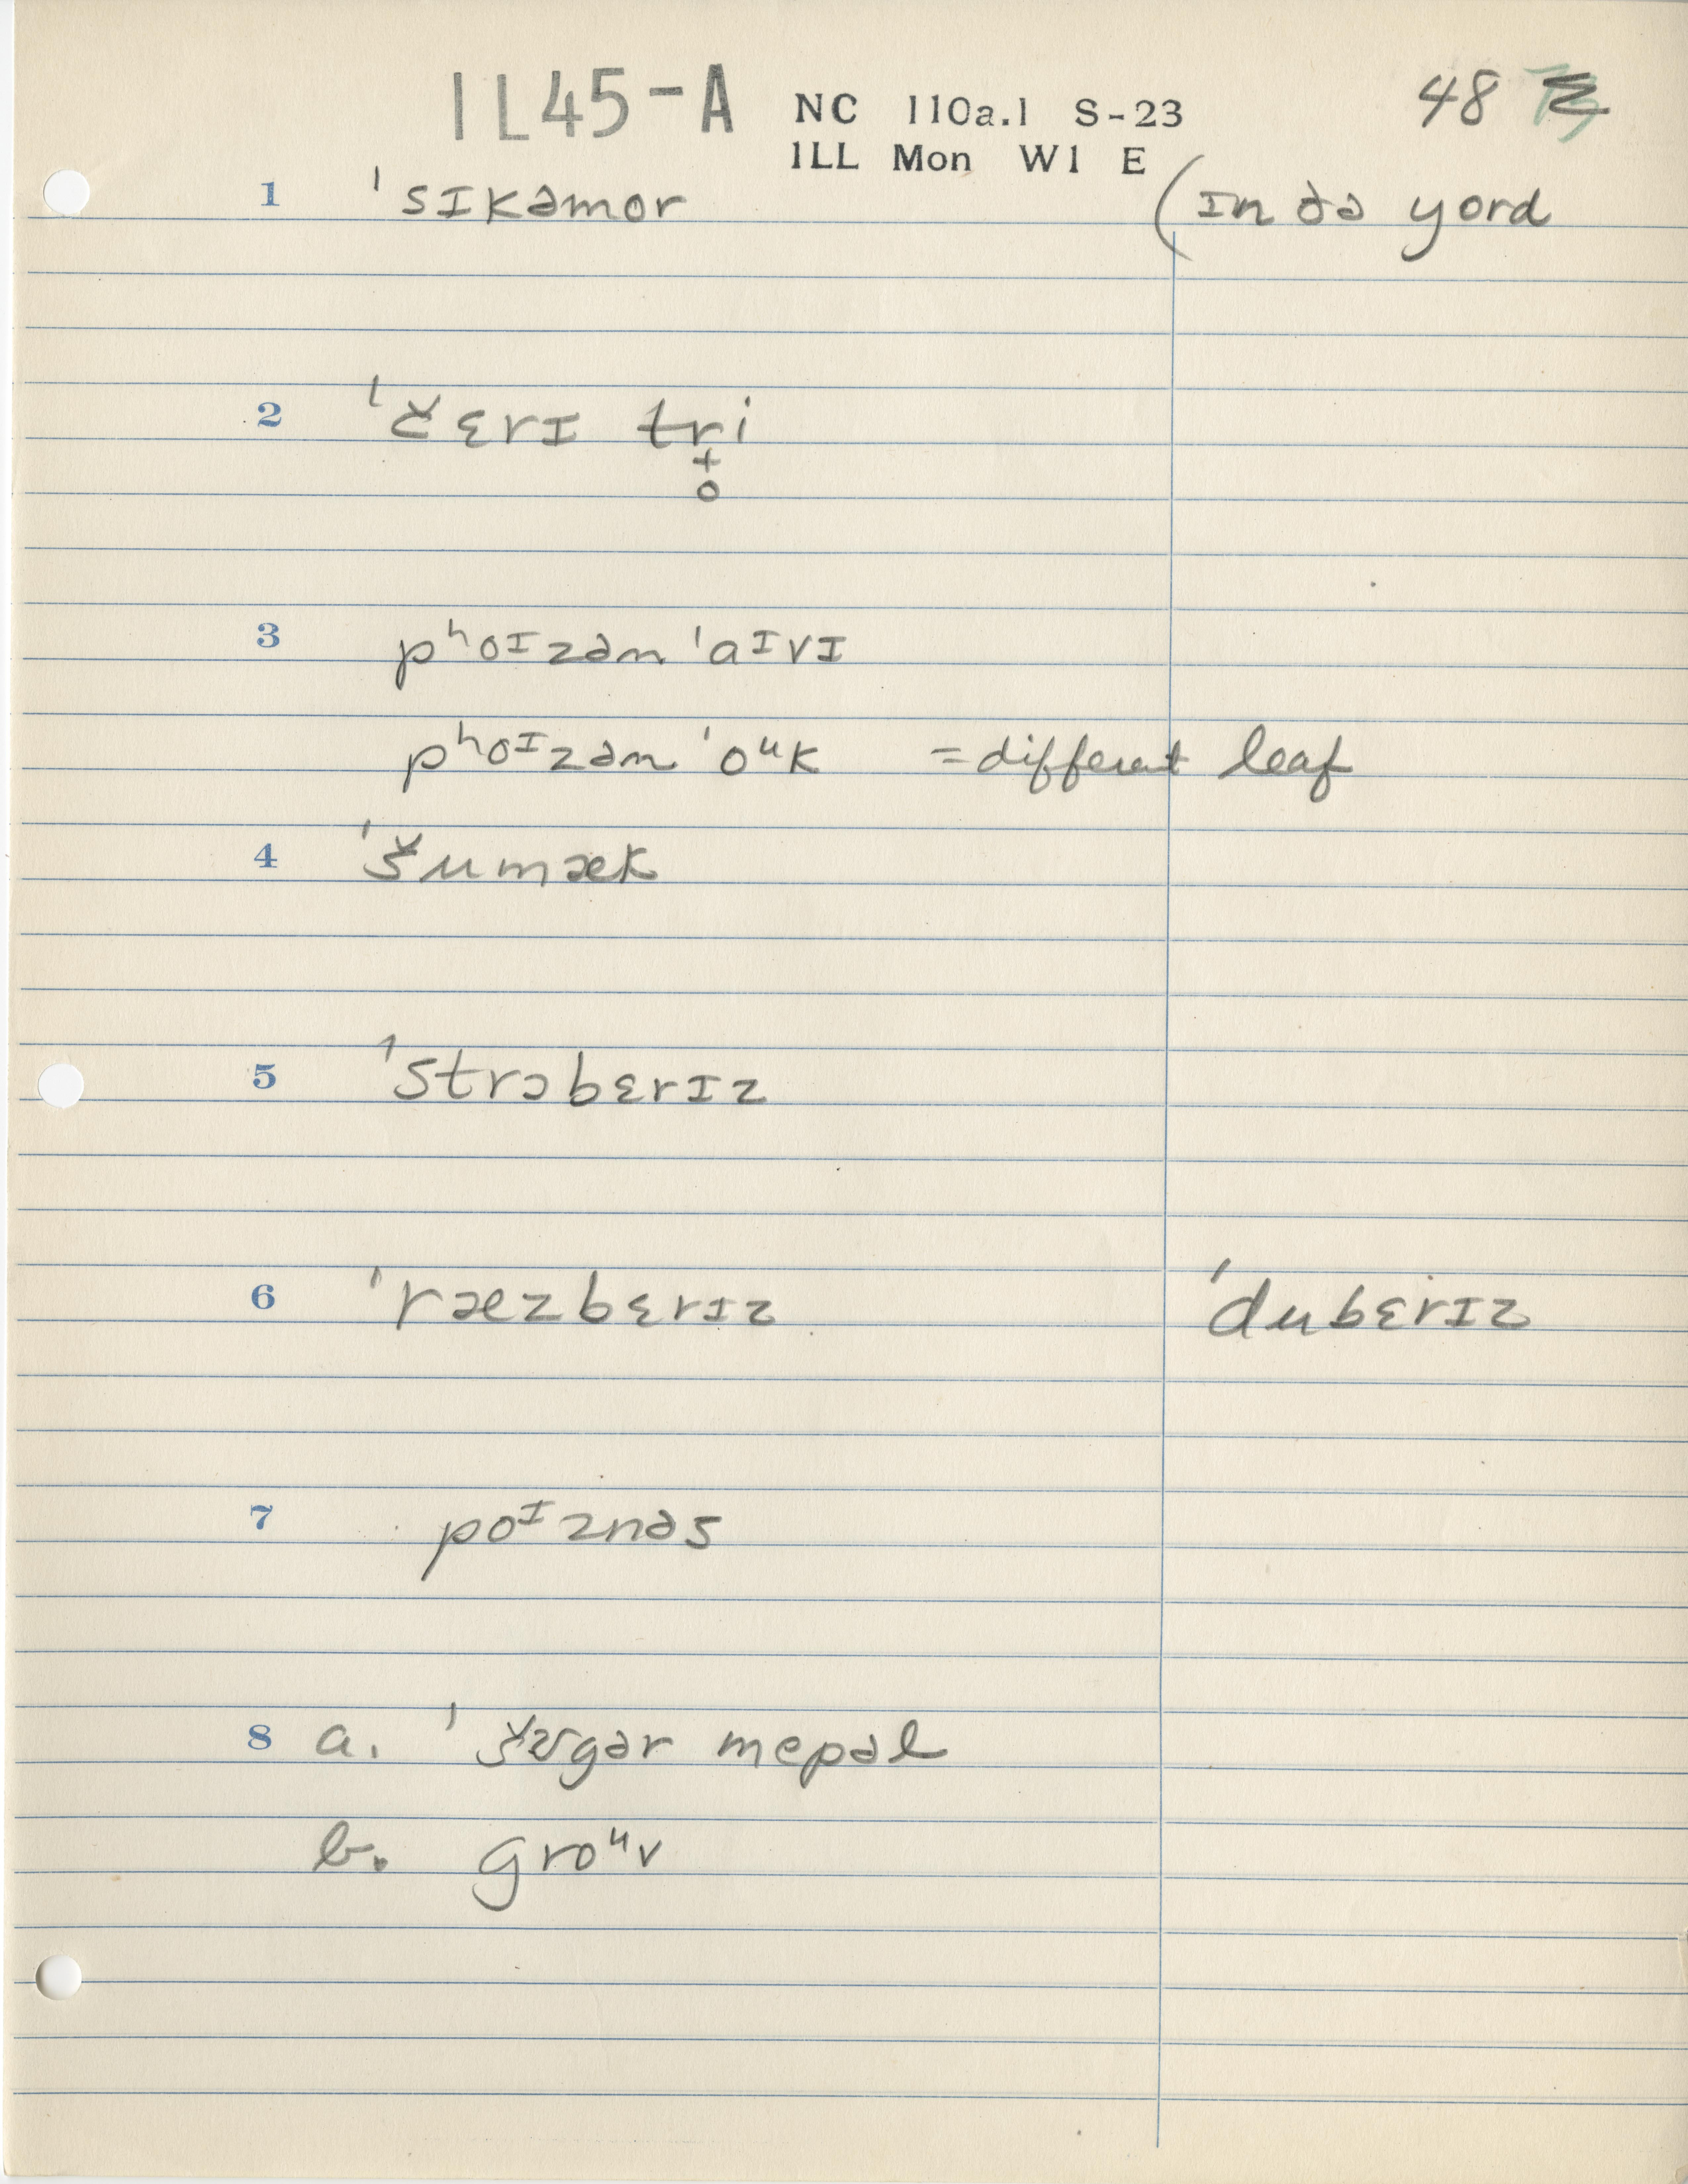 IL45-A NC 110a.1 S-23 48
ILL Mon W1 E
1 ˈsɪkəmor (ɪn ðə yord
2 ˈčɛrɪ tri
+
o
3 pʰoᶦzəm ˈaᶦvɪ
pʰoᶦzəm ˈoᵘk = different leaf
4 ˈšumæk
5 ˈstrɔbɛrɪz
6 ˈræzbɛrɪz ˈdubɛrɪz
7 poᶦznəs
8 a. ˈšʊgər mepəl
b. groᵘv